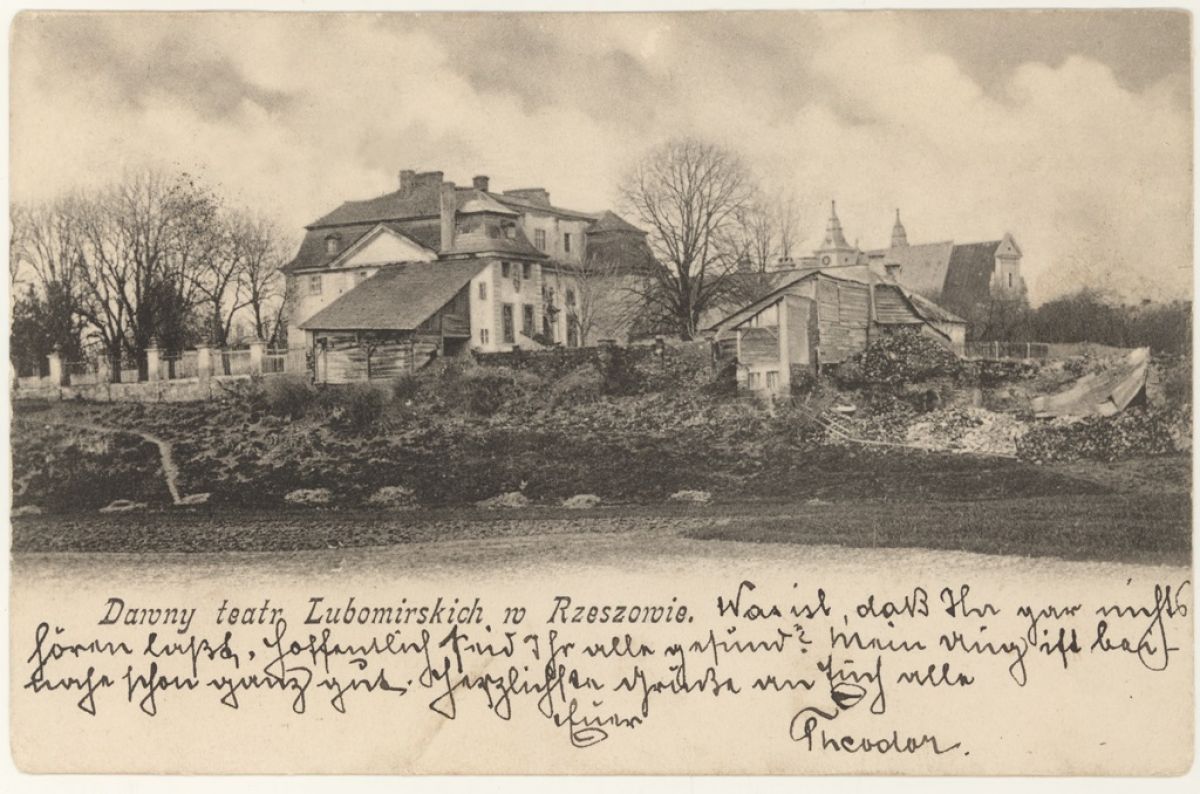 Dawny teatr Lubomirskich w Rzeszowie. Was ist, daß Ihr gar nichts
hören laßt, hoffentlich seid Ihr alle gesund? Mein Aug ist bei-
nahe schon ganz gut. Herzlichste Grüße an Euch alle
Euer
Theodor.